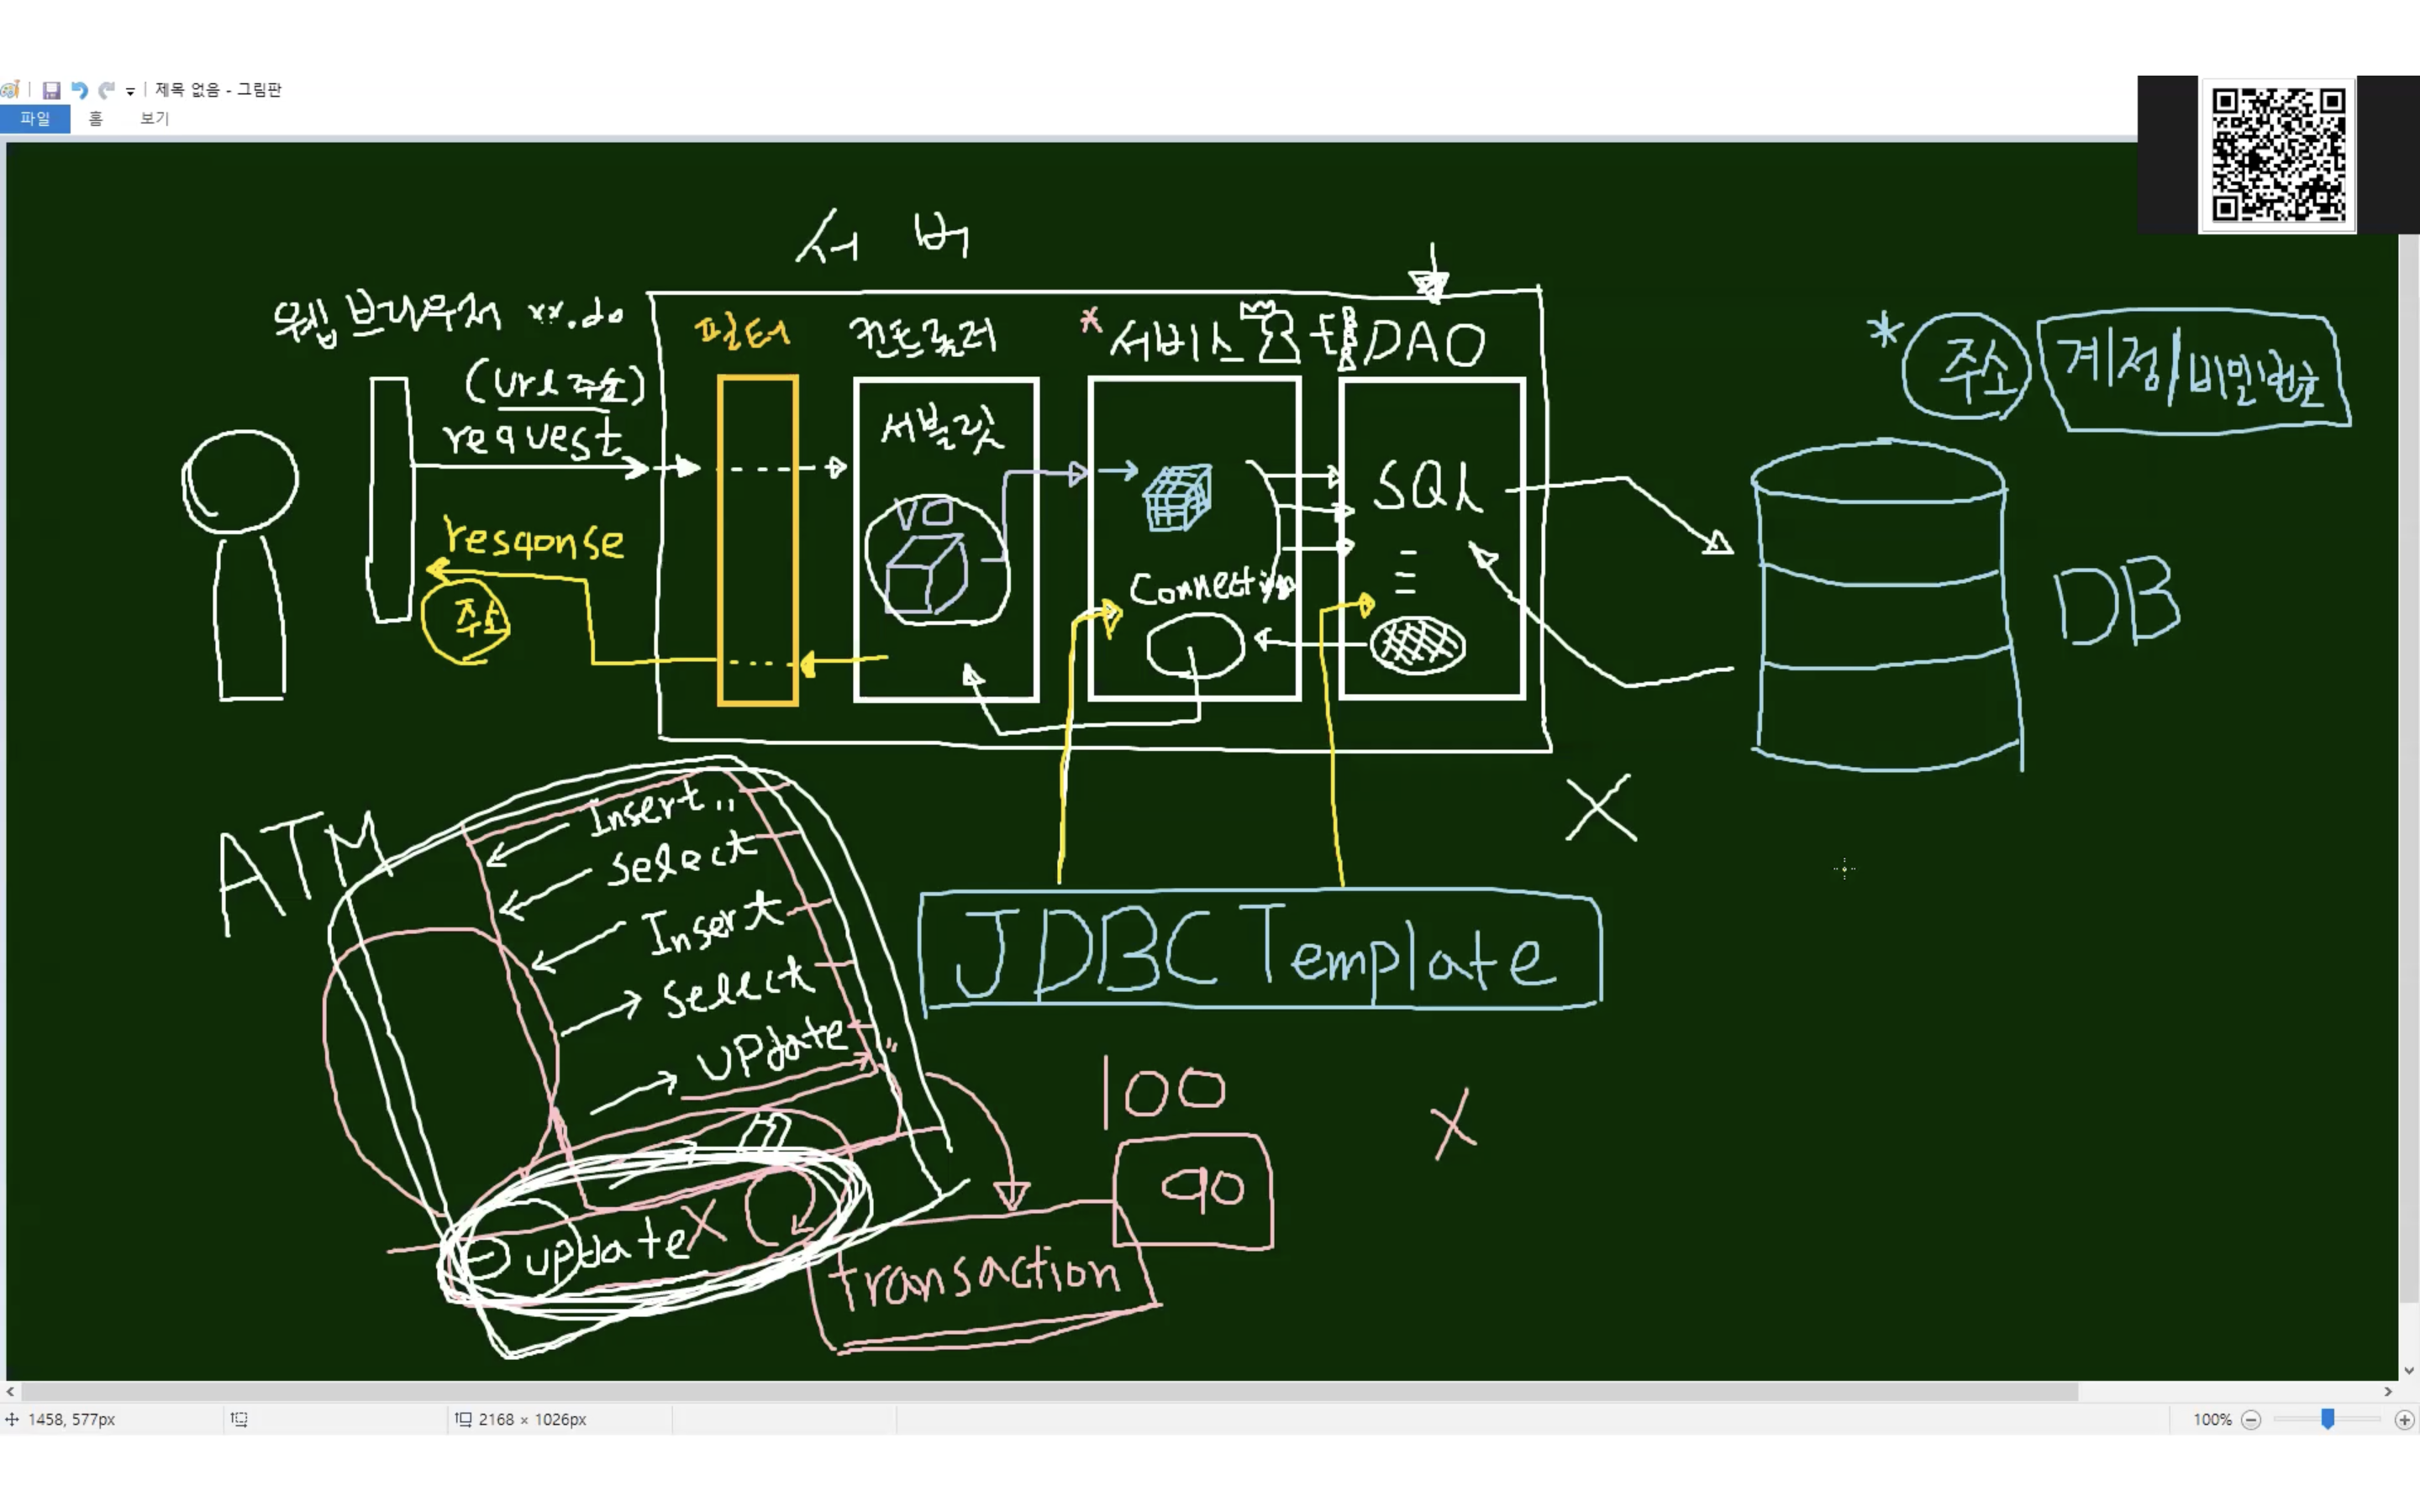 제목 없음 - 그림판
파일 홈 보기
서 버
웹 브라우저 xx.do
(url 주소)
request
response
주소
필터
컨트롤러
서블릿
VO
* 서비스
Connection
DAO
SQL
* 주소 계정/비밀번호
DB
ATM
Insert
select
Insert
select
update
update X
JDBC Template
X
100
90
X
transaction
1458, 577px
2168 × 1026px
100%